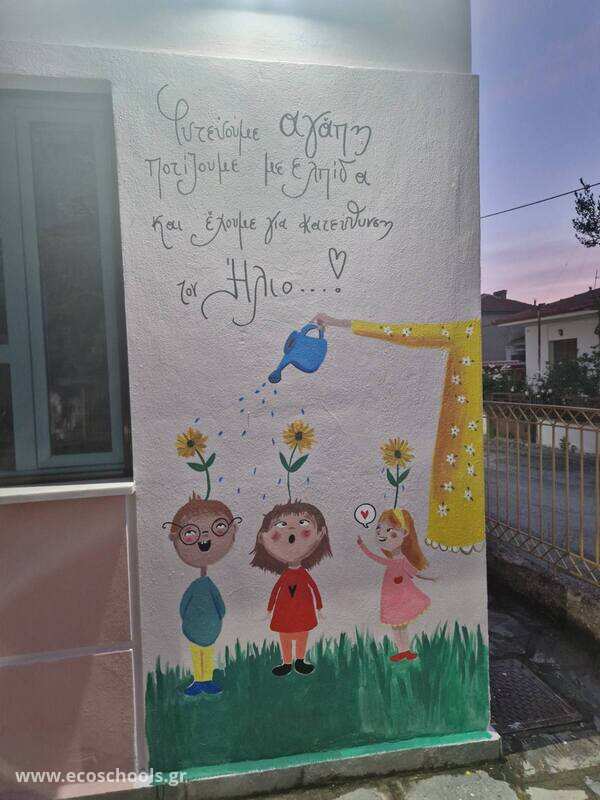 Φυτεύουμε αγάπη
ποτίζουμε με ελπίδα
και έχουμε για κατεύθυνση
τον Ήλιο...!
www.ecoschools.gr